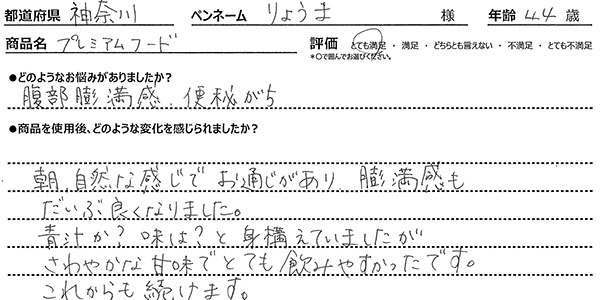 都道府県 神奈川 ペンネーム りょうま 様 年齢 44 歳
商品名 プレミアムフード 評価 とても満足・満足・どちらとも言えない・不満足・とても不満足
*○で囲んでお選びください。
●どのようなお悩みがありましたか?
腹部膨満感、便秘がち
●商品を使用後、どのような変化を感じられましたか?
朝、自然な感じでお通じがあり、膨満感も
だいぶ良くなりました。
青汁か?味は?と身構えていましたが
さわやかな甘味でとても飲みやすかったです。
これからも続けます。